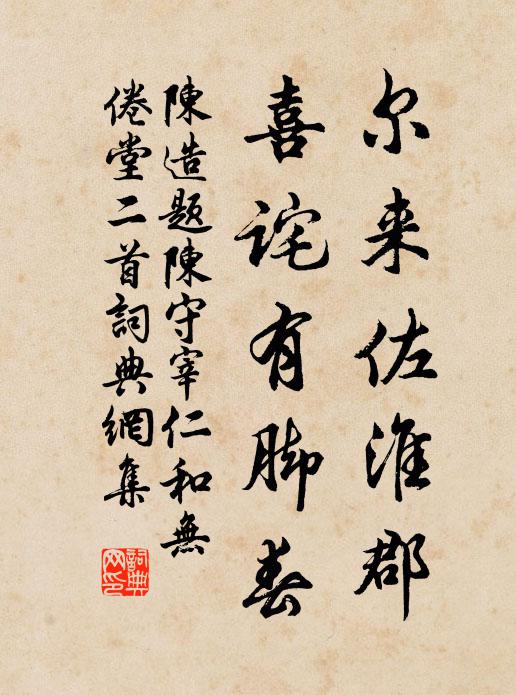 尔来佐淮郡
喜詫有脚春
陳造題陳守宰仁和無
倦堂二首詞典網集
詞典网印